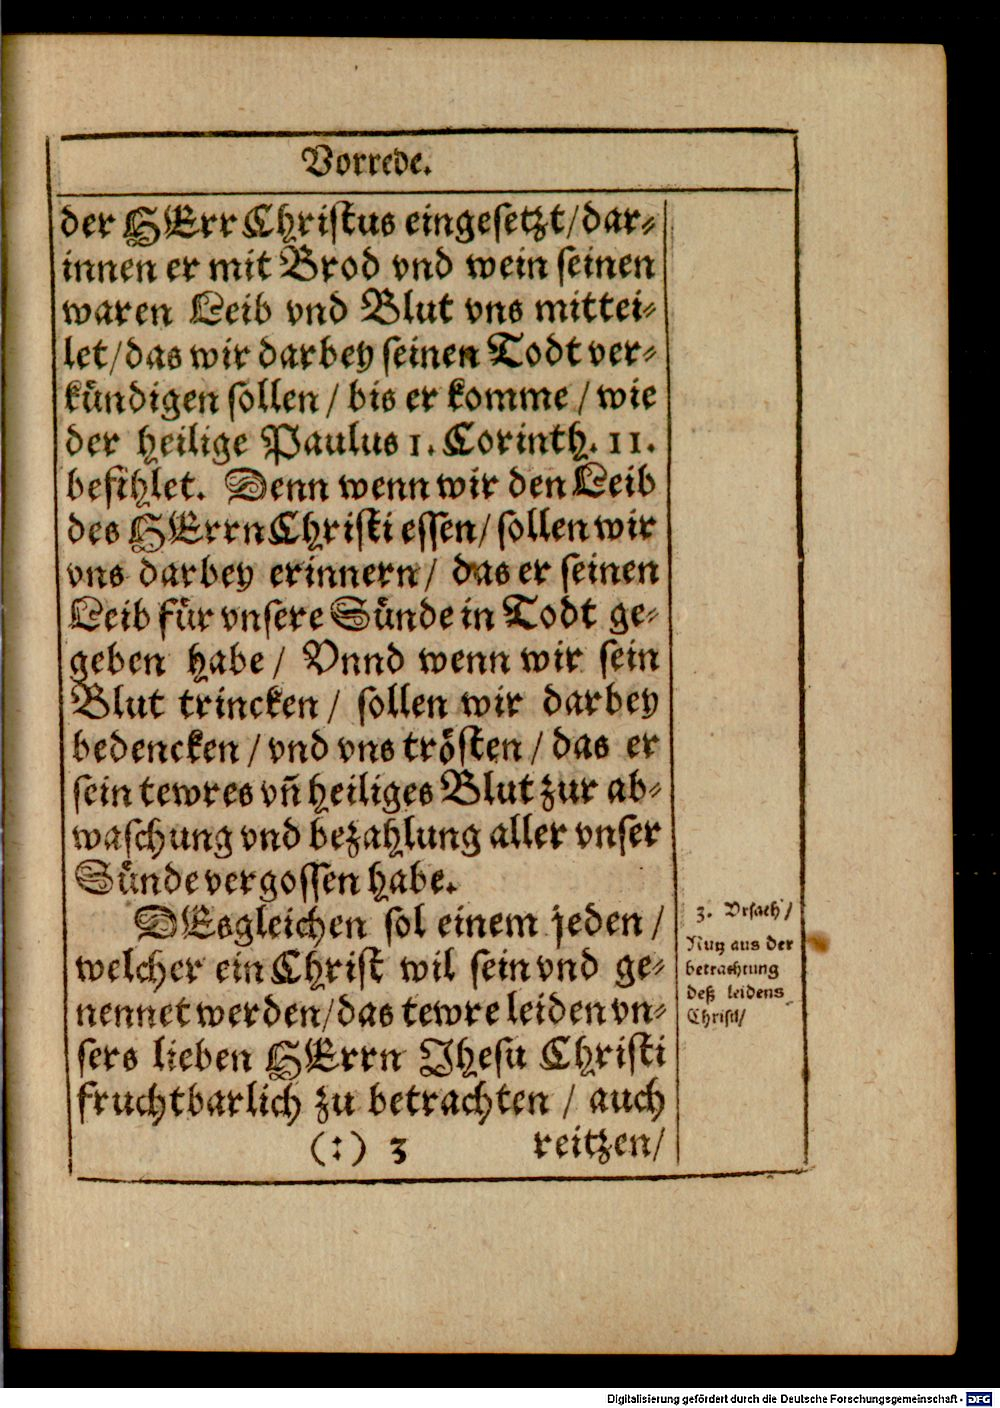 Vorrede.
der HErr Christus eingesetzt/dar-
innen er mit Brod vnd wein seinen
waren Leib vnd Blut vns mittei-
let/das wir darbey seinen Todt ver-
kündigen sollen / bis er komme / wie
der heilige Paulus 1. Corinth. 11.
befihlet. Denn wenn wir den Leib
des HErrn Christi essen/ sollen wir
vns darbey erinnern/ das er seinen
Leib für vnsere Sünde in Todt ge-
geben habe / Vnnd wenn wir sein
Blut trincken / sollen wir darbey
bedencken / vnd vns trösten / das er
sein tewres vñ heiliges Blut zur ab-
waschung vnd bezahlung aller vnser
Sünde vergossen habe.
DEsgleichen sol einem jeden /
welcher ein Christ wil sein vnd ge-
nennet werden/das tewre leiden vn-
sers lieben HErrn Jhesu Christi
fruchtbarlich zu betrachten / auch
(:) 3 reitzen/
3. Vrsach /
Nutz aus der
betrachtung
deß leidens
Christi/
Digitalisierung gefördert durch die Deutsche Forschungsgemeinschaft - DFG